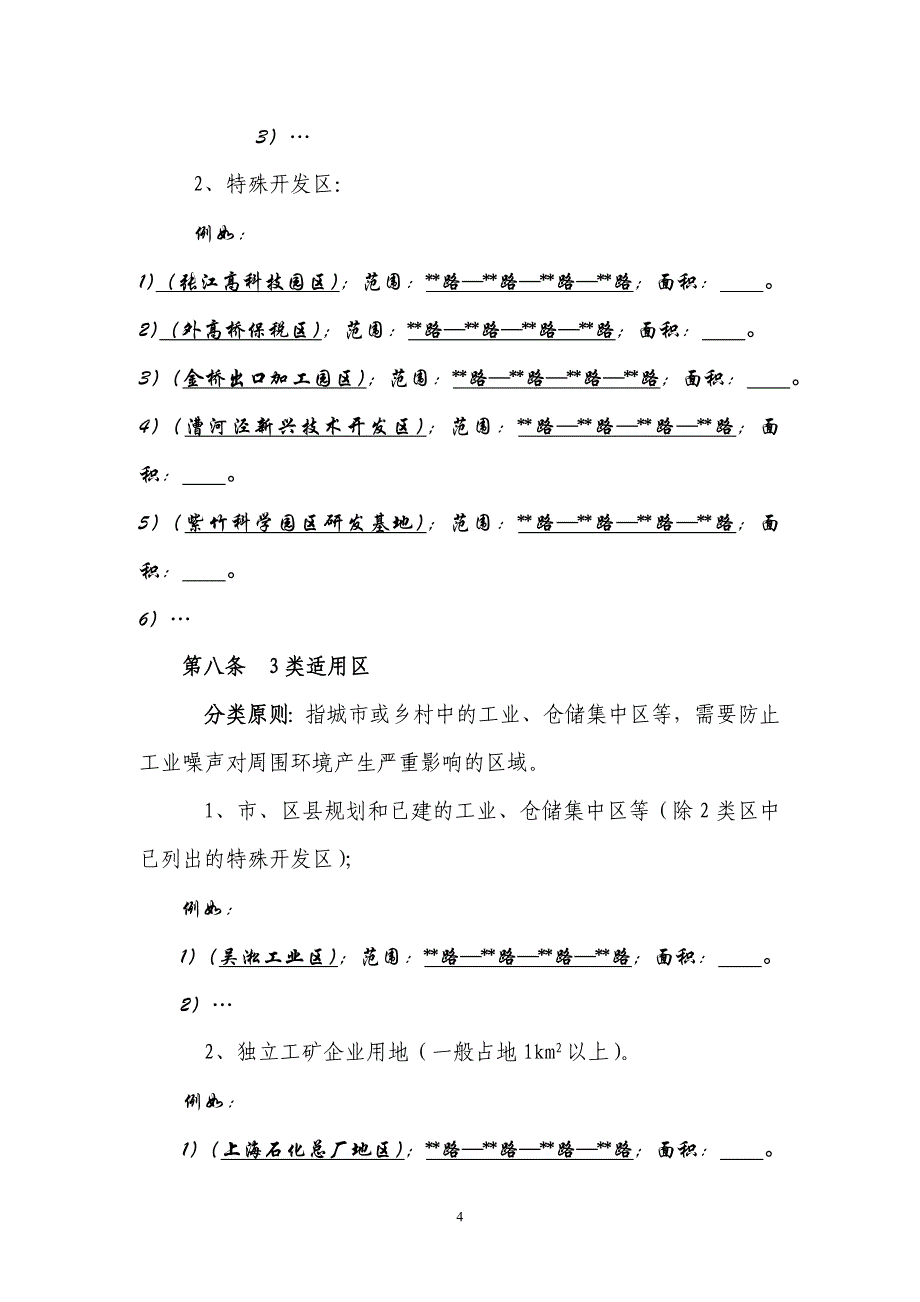 3）…
2、特殊开发区：
例如：
1)（张江高科技园区）；范围：**路—**路—**路—**路；面积：____。
2)（外高桥保税区）；范围：**路—**路—**路—**路；面积：____。
3)（金桥出口加工园区）；范围：**路—**路—**路—**路；面积：____。
4)（漕河泾新兴技术开发区）；范围：**路—**路—**路—**路；面
积：____。
5)（紫竹科学园区研发基地）；范围：**路—**路—**路—**路；面
积：____。
6）…
第八条　3类适用区
分类原则：指城市或乡村中的工业、仓储集中区等，需要防止
工业噪声对周围环境产生严重影响的区域。
1、市、区县规划和已建的工业、仓储集中区等（除2类区中
已列出的特殊开发区）；
例如：
1)（吴淞工业区）；范围：**路—**路—**路—**路；面积：____。
2）…
2、独立工矿企业用地（一般占地1km²以上）。
例如：
1)（上海石化总厂地区）；**路—**路—**路—**路；面积：____。
4